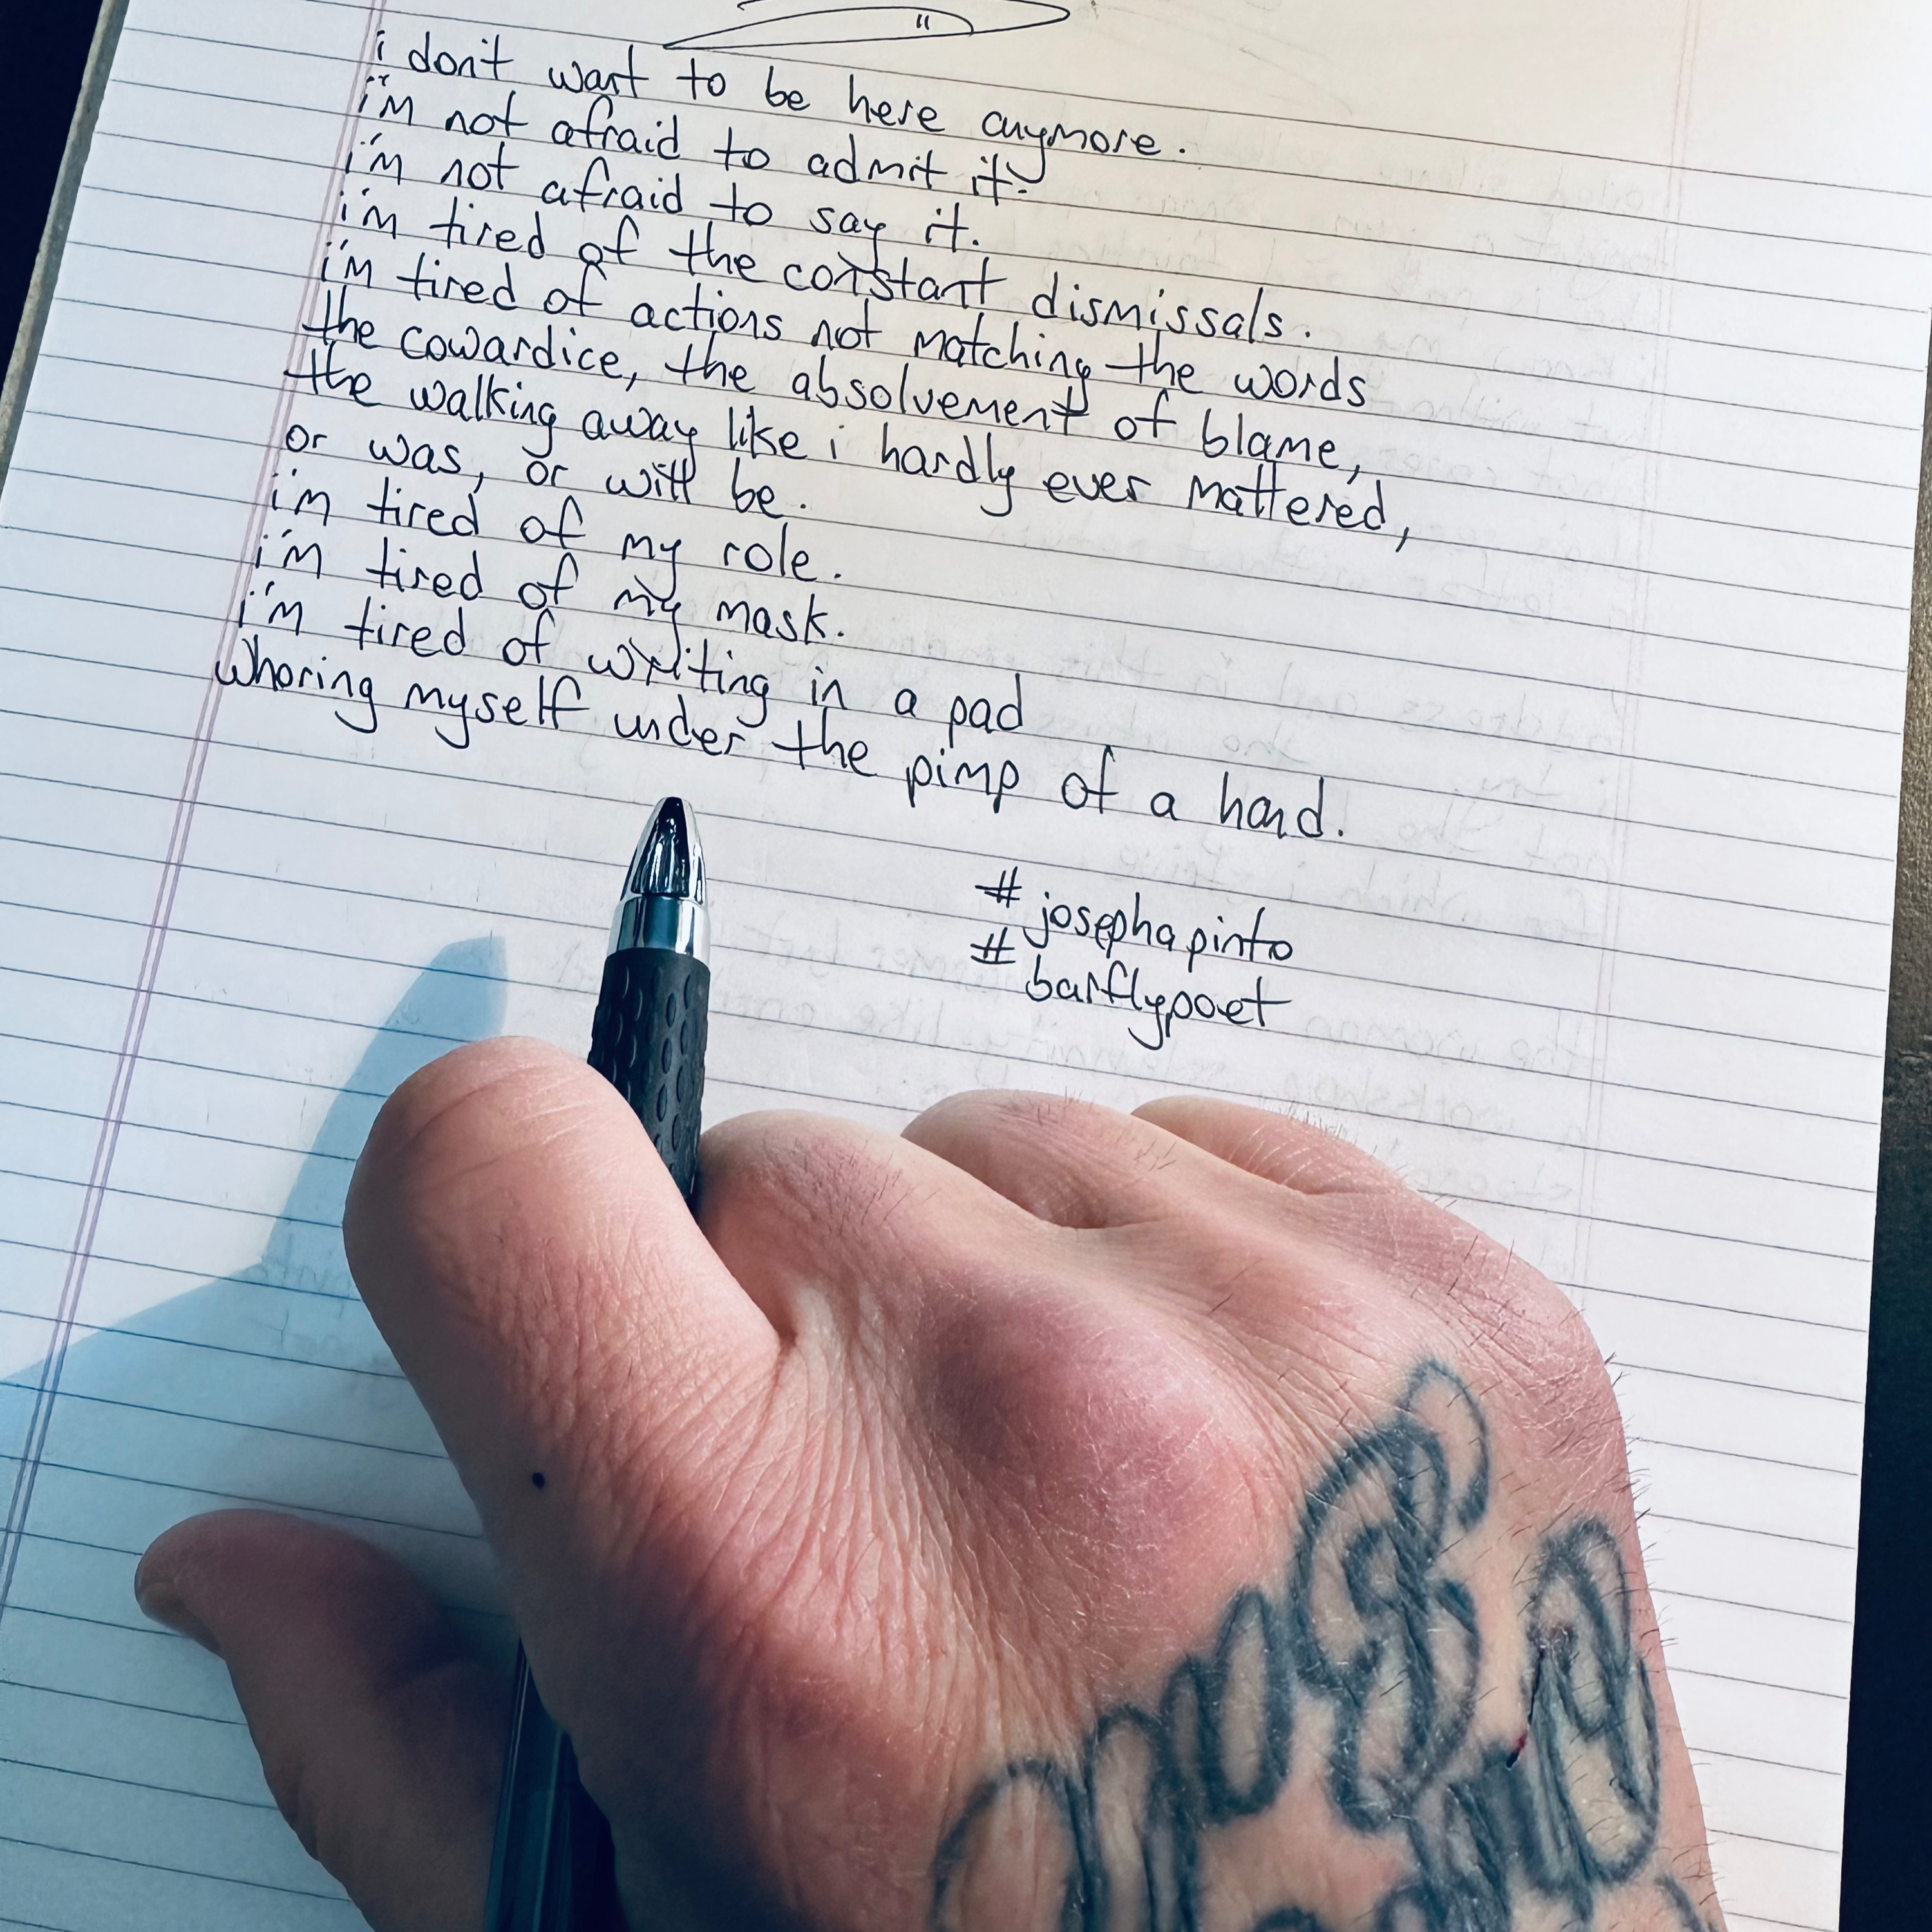 "
i don't want to be here anymore.
i'm not afraid to admit it.
i'm not afraid to say it.
i'm tired of the constant dismissals.
i'm tired of actions not matching the words
the cowardice, the absolvement of blame,
the walking away like i hardly ever mattered,
or was, or will be.
i'm tired of my role.
i'm tired of my mask.
i'm tired of writing in a pad
whoring myself under the pimp of a hand.
# josephapinto
# barflypoet